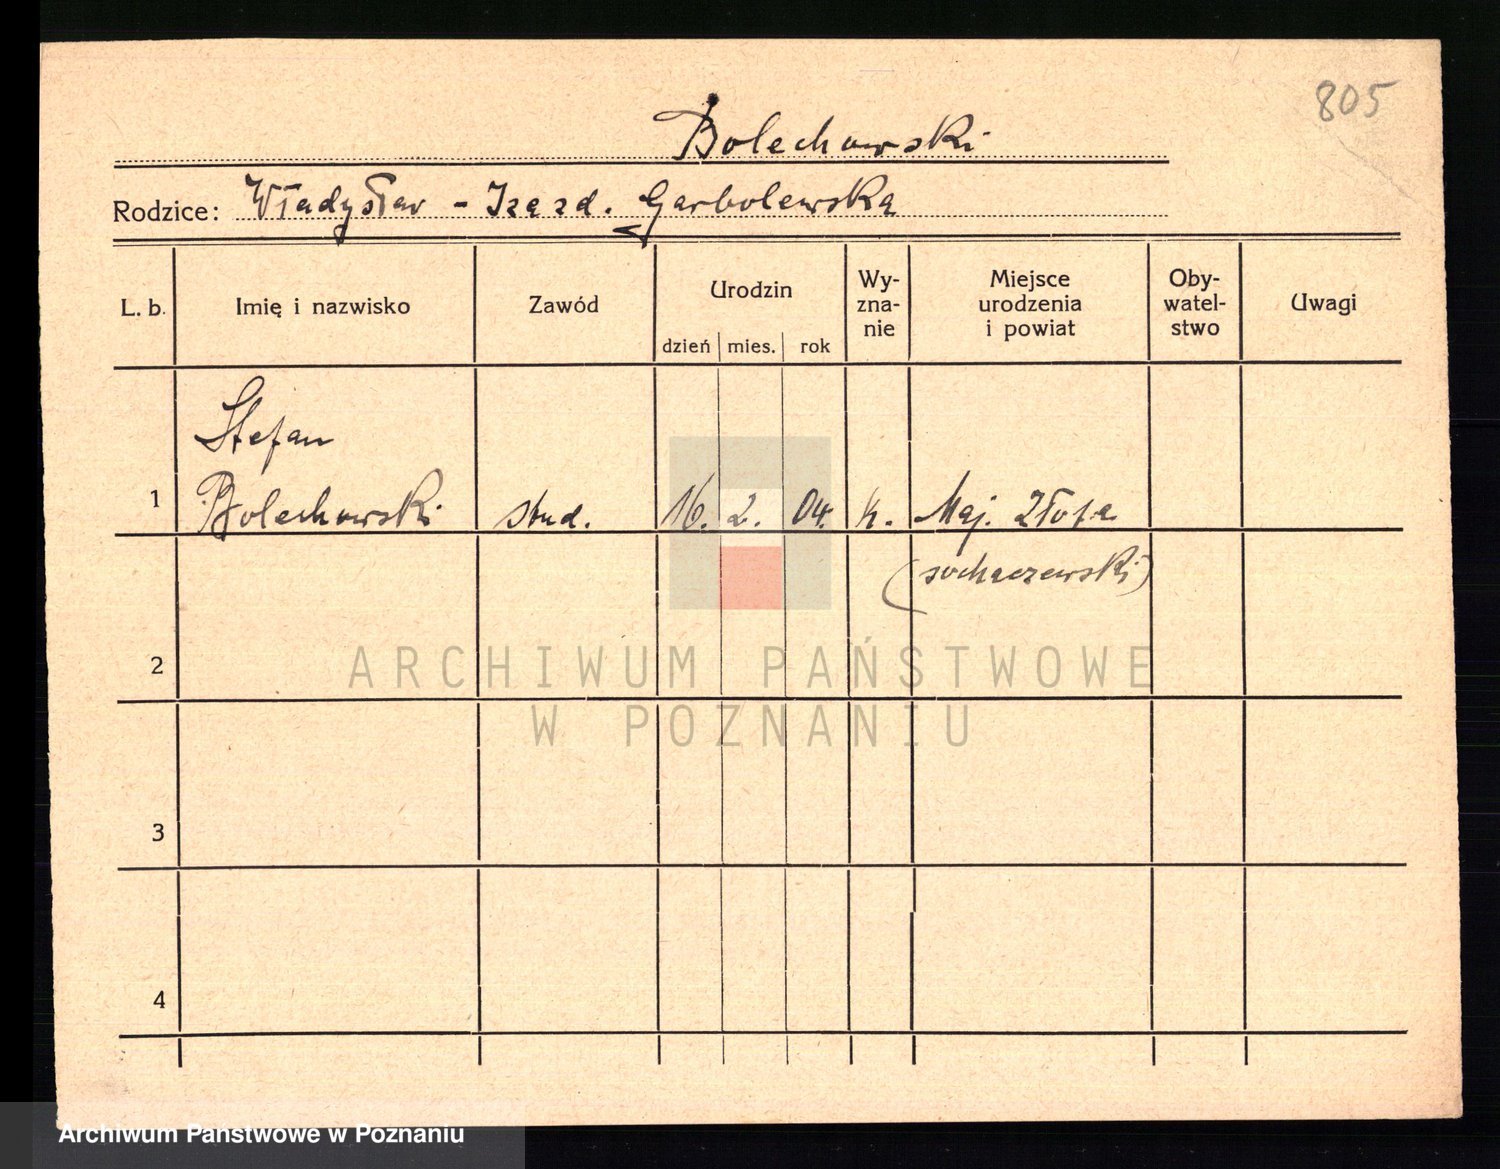 805
Bolechowski
Rodzice: Władysław - Iza zd. Garbolewska
L. b. Imię i nazwisko Zawód Urodzin Wy-zna-nie Miejsce urodzenia i powiat Oby-watel-stwo Uwagi
dzień mies. rok
Stefan
1 Bolechowski stud. 16. 2. 04. k. Maj. Złota
(sochaczewski)
2
ARCHIWUM PAŃSTWOWE
W POZNANIU
3
4
Archiwum Państwowe w Poznaniu